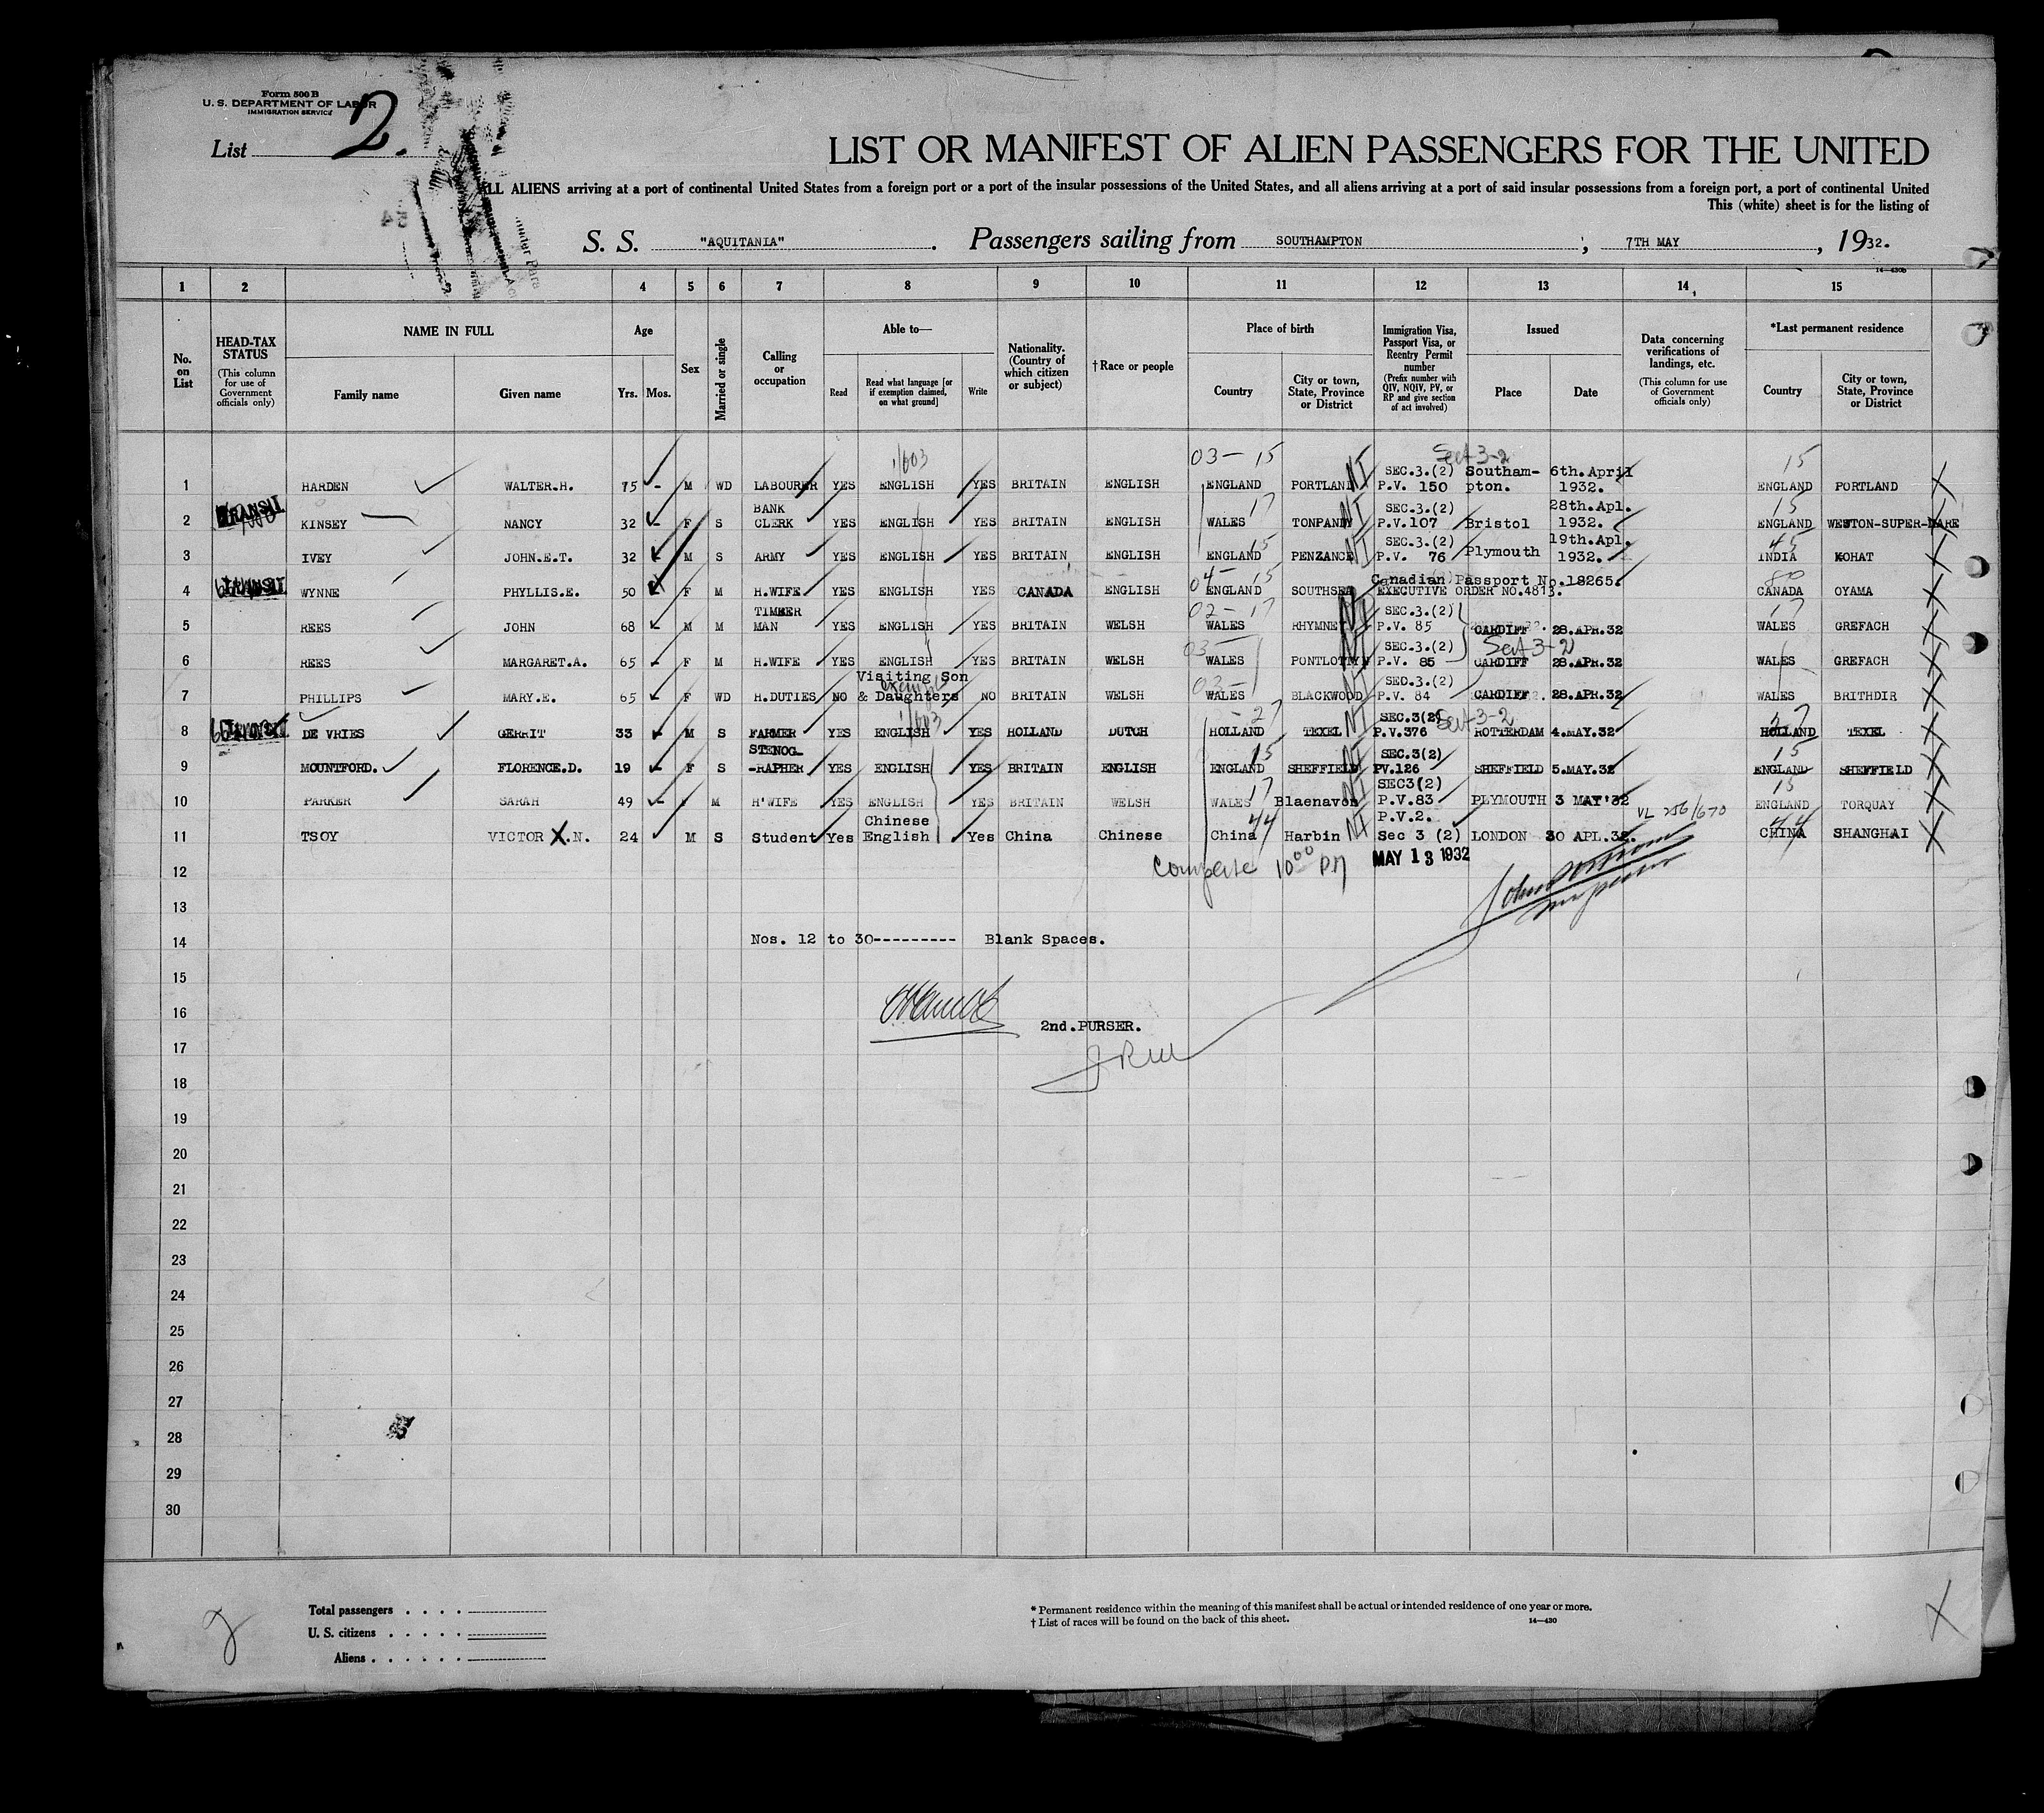 Form 500 B
U. S. DEPARTMENT OF LABOR
IMMIGRATION SERVICE
List 2.
LIST OR MANIFEST OF ALIEN PASSENGERS FOR THE UNITED
ALL ALIENS arriving at a port of continental United States from a foreign port or a port of the insular possessions of the United States, and all aliens arriving at a port of said insular possessions from a foreign port, a port of continental United
This (white) sheet is for the listing of
S. S. "AQUITANIA". Passengers sailing from SOUTHAMPTON, 7TH MAY, 1932.
14—430b
1 2 4 5 6 7 8 9 10 11 12 13 14 15
No. on List
HEAD-TAX STATUS
(This column for use of Government officials only)
NAME IN FULL
Family name Given name
Age
Yrs. Mos.
Sex
Married or single
Calling or occupation
Able to—
Read
Read what language [or if exemption claimed, on what ground]
Write
Nationality. (Country of which citizen or subject)
†Race or people
Place of birth
Country
City or town, State, Province or District
Immigration Visa, Passport Visa, or Reentry Permit number
(Prefix number with QIV, NQIV, PV, or RP and give section of act involved)
Issued
Place Date
Data concerning verifications of landings, etc.
(This column for use of Government officials only)
*Last permanent residence
Country
City or town, State, Province or District
1603 03-15 Sect 3-2 15
1 HARDEN WALTER.H. 75 - M WD LABOURER YES ENGLISH YES BRITAIN ENGLISH ENGLAND PORTLAND NI SEC.3.(2) P.V. 150 Southam-pton. 6th.April 1932. ENGLAND PORTLAND X
TRANSIT 17 15
2 KINSEY NANCY 32 - F S BANK CLERK YES ENGLISH YES BRITAIN ENGLISH WALES TONPANDY NI SEC.3.(2) P.V.107 Bristol 28th.Apl. 1932. ENGLAND WESTON-SUPER-MARE X
15 45
3 IVEY JOHN.E.T. 32 M S ARMY YES ENGLISH YES BRITAIN ENGLISH ENGLAND PENZANCE NI SEC.3.(2) P.V. 76 Plymouth 19th.Apl. 1932. INDIA KOHAT X
TRANSIT 04-15 80
4 WYNNE PHYLLIS.E. 50 F M H.WIFE YES ENGLISH YES CANADA ENGLISH ENGLAND SOUTHSEA Canadian Passport No.18265. EXECUTIVE ORDER NO.4813. CANADA OYAMA X
02-17 17
5 REES JOHN 68 - M M TIMBER MAN YES ENGLISH YES BRITAIN WELSH WALES RHYMNEY NI SEC.3.(2) P.V. 85 CARDIFF 28.APR.32 WALES GREFACH X
03- Sect 3-2
6 REES MARGARET.A. 65 - F M H.WIFE YES ENGLISH YES BRITAIN WELSH WALES PONTLOTTYN NI SEC.3.(2) P.V. 85 CARDIFF 28.APR.32 WALES GREFACH X
7 PHILLIPS MARY.E. 65 - F WD H.DUTIES NO Visiting Son & Daughters NO BRITAIN WELSH WALES BLACKWOOD NI SEC.3.(2) P.V. 84 CARDIFF 28.APR.32 WALES BRITHDIR X
1603 -27 Sect 3-2 27
8 DE VRIES GERRIT 33 - M S FARMER YES ENGLISH YES HOLLAND DUTCH HOLLAND TEXEL NI SEC.3(2) P.V.376 ROTTERDAM 4.MAY.32 HOLLAND TEXEL X
15 15
9 MOUNTFORD. FLORENCE.D. 19 - F S STENOG-RAPHER YES ENGLISH YES BRITAIN ENGLISH ENGLAND SHEFFIELD NI SEC.3(2) PV.126 SHEFFIELD 5.MAY.32 ENGLAND SHEFFIELD X
17 15
10 PARKER SARAH 49 - F M H'WIFE YES ENGLISH YES BRITAIN WELSH WALES Blaenavon NI SEC3(2) P.V.83 PLYMOUTH 3 MAY'32 ENGLAND TORQUAY X
44 VL 256/670 44
11 TSOY VICTOR X.N. 24 M S Student Yes Chinese English Yes China Chinese China Harbin NI P.V.2. Sec 3 (2) LONDON 30 APL.32. CHINA SHANGHAI X
Complete 10 00 PM MAY 13 1932
12
13
14 Nos. 12 to 30--------- Blank Spaces.
15
16 2nd.PURSER.
17
18
19
20
21
22
23
24
25
26
27
28
29
30
2
Total passengers . . . .
U. S. citizens . . . . .
Aliens . . . . . .
* Permanent residence within the meaning of this manifest shall be actual or intended residence of one year or more.
† List of races will be found on the back of this sheet. 14—430
X